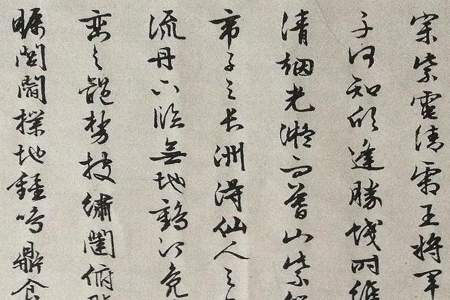 宗紫電清霜王將軍
子何知躬逢勝餞時維
清烟光凝而暮山紫
帝子之長洲得仙人之
流丹下臨無地鶴汀鳧
巒之體勢披繡闥俯
矚閭閻撲地鍾鳴鼎食